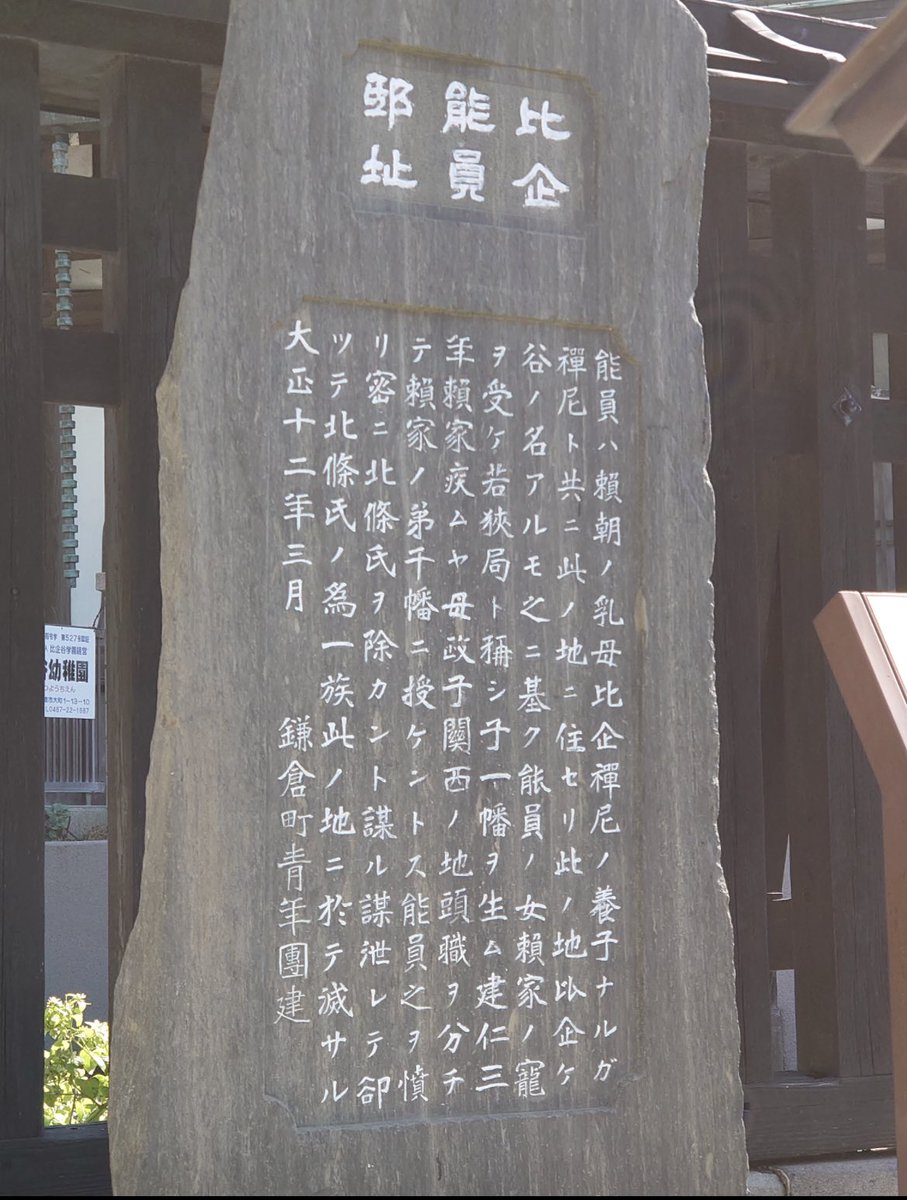 比企
能員
邸址
能員ハ頼朝ノ乳母比企禪尼ノ養子ナルガ
禪尼ト共ニ此ノ地ニ住セリ此ノ地比企ケ
谷ノ名アルモ之ニ基ク能員ノ女頼家ノ寵
ヲ受ケ若狹局ト稱シ子一幡ヲ生ム建仁三
年頼家疾ムヤ母政子關西ノ地頭職ヲ分チ
テ頼家ノ弟千幡ニ授ケントス能員之ヲ憤
リ密ニ北條氏ヲ除カント謀ル謀泄レテ卻
ツテ北條氏ノ為一族此ノ地ニ於テ滅サル
大正十二年三月 鎌倉町青年團建
第527号認証
比企谷学園経営
幼稚園
ようちえん
市大町1-13-10
0467-22-1687